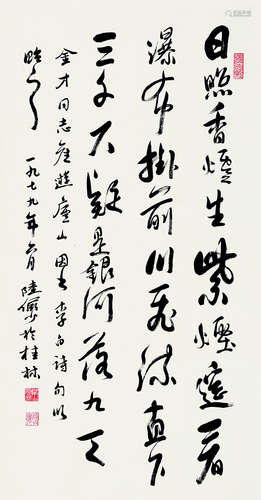 日照香爐生紫煙遙看
瀑布掛前川飛流直下
三千尺疑是銀河落九天
金才同志遊廬山因書李白詩句以
貽之 一九七九年六月 陸儼少於桂林